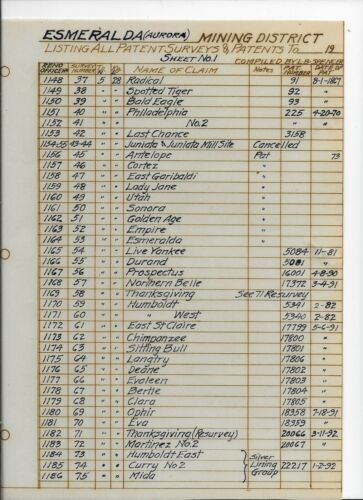 ESMERALDA (AURORA) MINING DISTRICT
LISTING ALL PATENT SURVEYS & PATENTS TO 19
SHEET NO.1 COMPILED BY L.B. SPENCER
RENO OFFICE SURVEY NUMBER N E NAME OF CLAIM Notes PAT. NUMBER DATE OF PAT
1148 37 5 28 Radical 91 8-1-1867
1149 38 " " Spotted Tiger 92 "
1150 39 " " Bald Eagle 93 "
1151 40 " " Philadelphia 225 4-20-70
1152 41 " " " No.2 " "
1153 42 " " Last Chance 3158
1154-55 43-44 " " Juniata & Juniata Mill Site Cancelled
1156 45 " " Antelope Pat 73
1157 46 " " Cortez " "
1158 47 " " East Garibaldi " "
1159 48 " " Lady Jane " "
1160 49 " " Utah " "
1161 50 " " Sonora " "
1162 51 " " Golden Age " "
1163 52 " " Empire " "
1164 53 " " Esmeralda " "
1165 54 " " Live Yankee 5084 11-81
1166 55 " " Durand 5081 "
1167 56 " " Prospectus 16001 4-8-90
1168 57 " " Northern Belle 17372 3-4-91
1169 58 " " Thanksgiving See 71 Resurvey
1170 59 " " Humboldt 5341 2-82
1171 60 " " " West 5340 2-82
1172 61 " " East St Claire 17799 5-6-91
1173 62 " " Chimpanzee 17800 "
1174 63 " " Sitting Bull 17801 "
1175 64 " " Langtry 17806 "
1176 65 " " Deane 17802 "
1177 66 " " Evaleen 17803 "
1178 67 " " Bertie 17804 "
1179 68 " " Clara 17805 "
1180 69 " " Ophir 18358 7-18-91
1181 70 " " Eva 18359 "
1182 71 " " Thanksgiving (Resurvey) 20066 3-11-92
1183 72 " " Martinez No 2 20067 "
1184 73 " " Humboldt East Silver
1185 74 " " Curry No 2 Lining 22217 1-2-92
1186 75 " " Mida Group